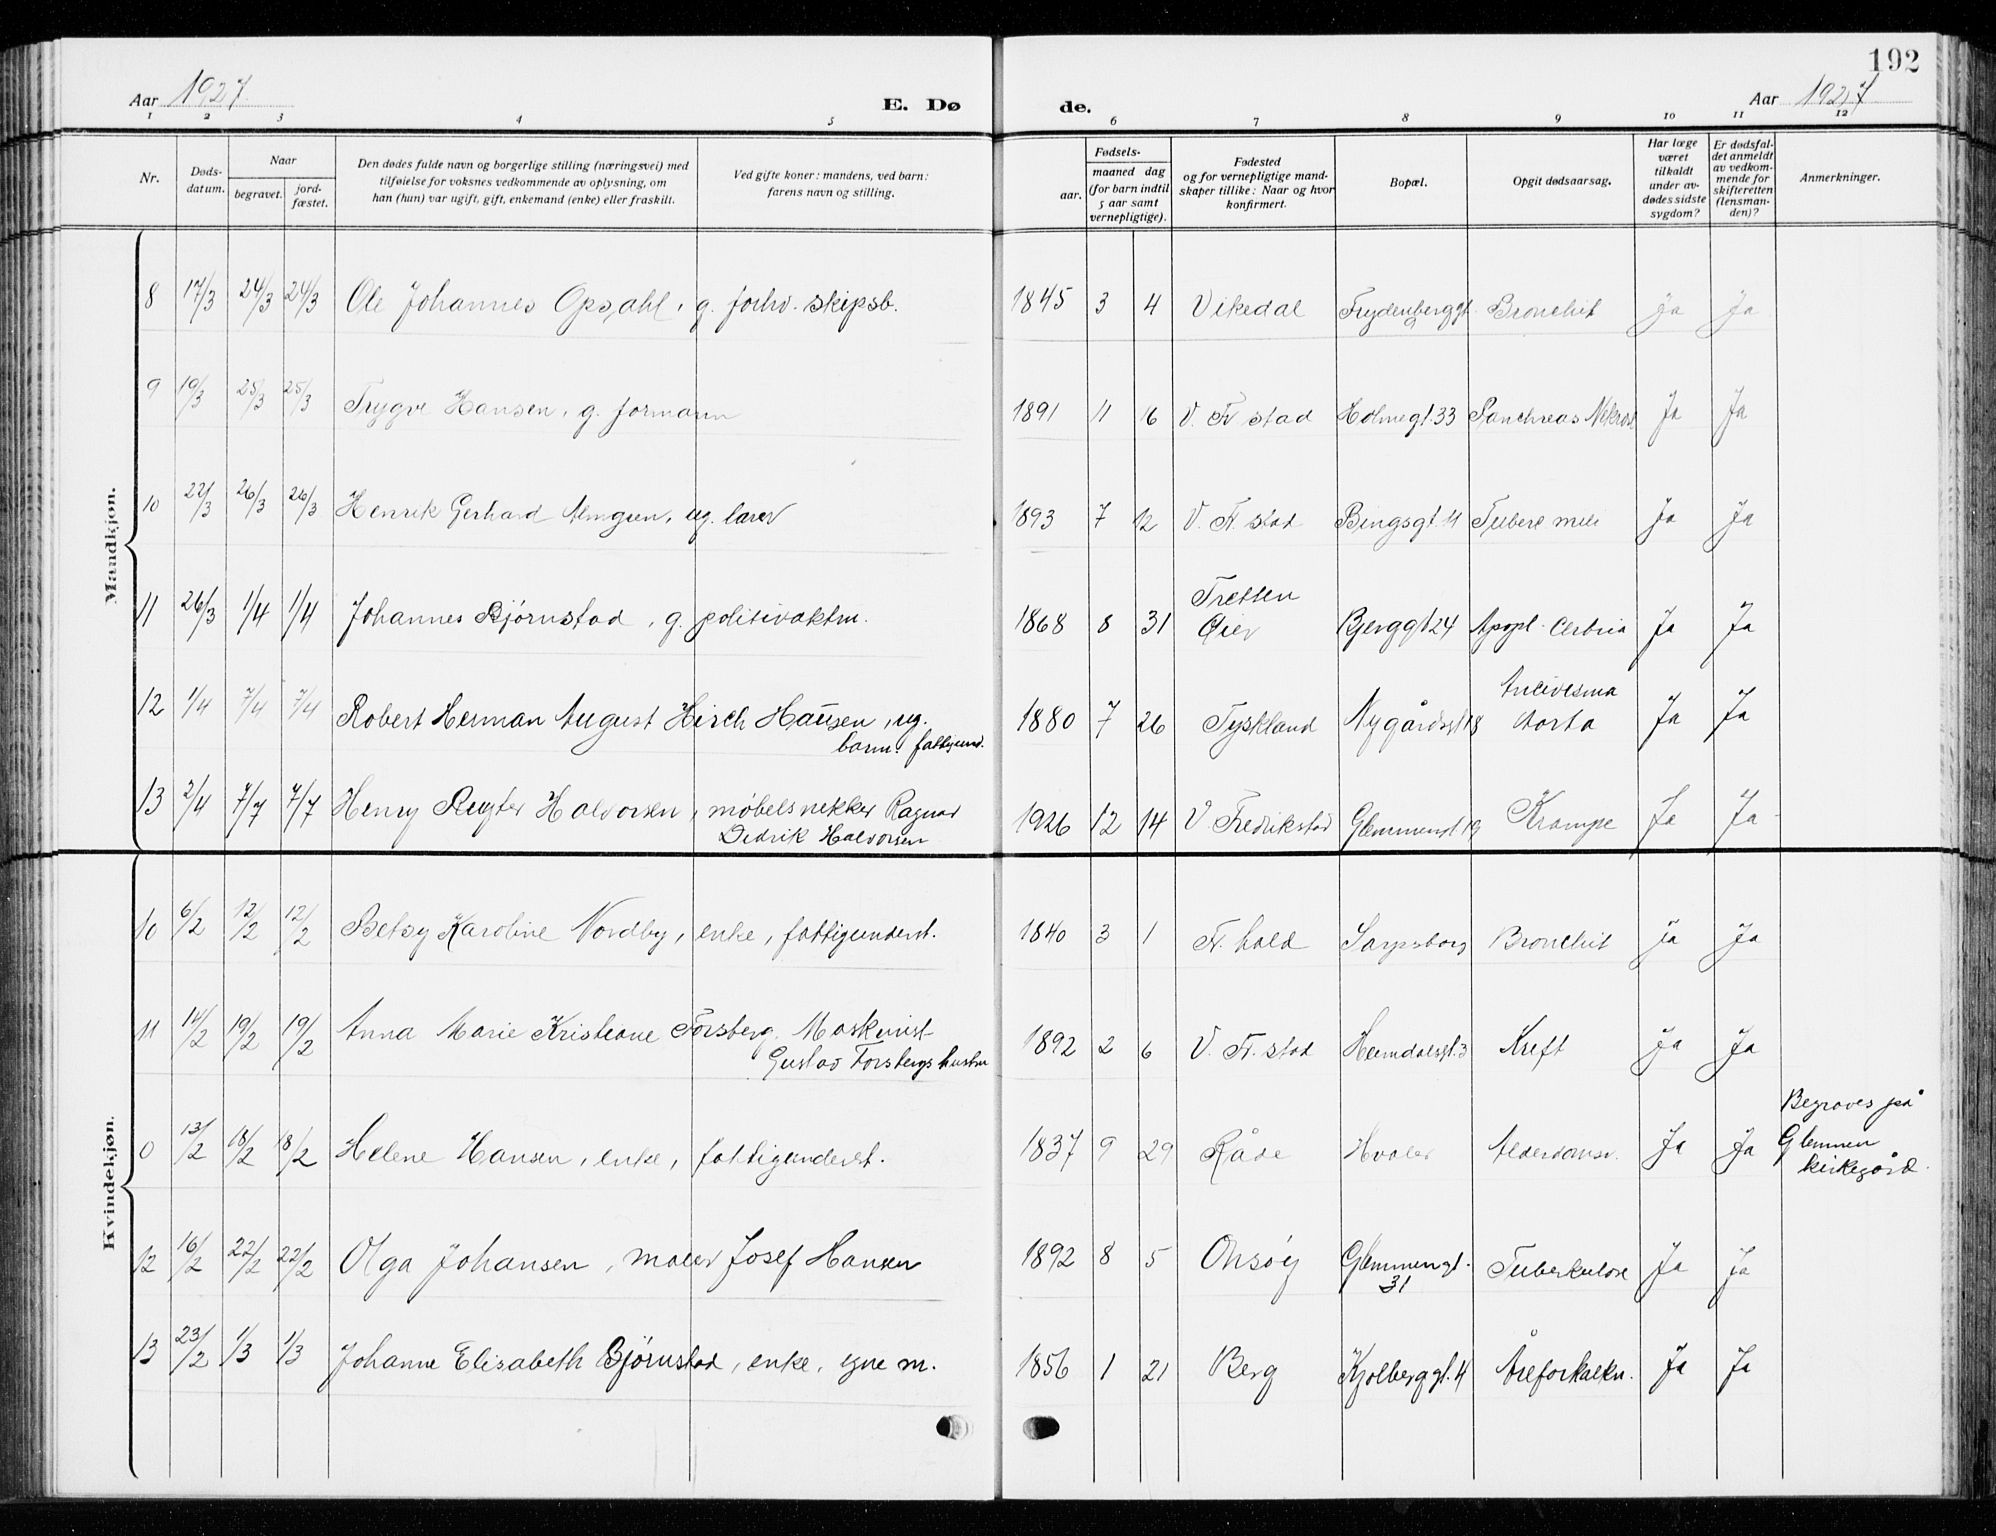 192
Aar 1927.
E. Dø
de.
Aar 1927
1 2 3 4 5 6 7 8 9 10 11 12
Nr.
Døds-
datum.
Naar
begravet.
jord-
fæstet.
Den dødes fulde navn og borgerlige stilling (næringsvei) med
tilføielse for voksnes vedkommende av oplysning, om
han (hun) var ugift, gift, enkemand (enke) eller fraskilt.
Ved gifte koner: mandens, ved barn:
farens navn og stilling.
Fødsels-
aar.
maaned dag
(for barn indtil
5 aar samt
vernepligtige).
Fødested
og for vernepligtige mand-
skaper tillike: Naar og hvor
konfirmert.
Bopæl.
Opgit dødsaarsag.
Har læge
været
tilkaldt
under av-
dødes sidste
sygdom?
Er dødsfal-
det anmeldt
av vedkom-
mende for
skifteretten
(lensman-
den)?
Anmerkninger.
Mandkjøn.
8 17/3 24/3 24/3 Ole Johannes Opsahl, g. forhv. skipsb. 1845 3 4 Vikedal Frydenberggt. Bronchit Ja Ja
9 19/3 25/3 25/3 Trygve Hansen, g. formann 1891 11 6 V. Fr stad Holmegt. 33 Panchreas Nekrose Ja Ja
10 22/3 26/3 26/3 Henrik Gerhard Almgren, ug. lærer 1893 7 12 V. Fr. stad Bingsgt. 11 Ja Ja
11 26/3 1/4 1/4 Johannes Bjørnstad, g. politivaktm. 1868 8 31 Tretten
Øier Bjerggt 24 Apopl. Ja Ja
12 1/4 7/4 7/4 Robert Herman August Hirch Hansen, ug.
barn. fattigund. 1880 7 26 Tyskland Nygårdsgt 18
Aorta Ja Ja
13 2/4 7/7 7/7 Henry Halvorsen, møbelsnekker Ragnar
Didrik Halvorsen 1926 12 14 V Fredrikstad Glemmengt 19 Krampe Ja Ja
Kvindekjøn.
10 6/2 12/2 12/2 Betsy Karoline Nordby, enke, fattigunderst. 1840 3 1 Fr. hald Sarpsborg Bronchit Ja Ja
11 14/2 19/2 19/2 Anna Marie Kristiane Forsberg. Maskinist
Gustav Forsbergs hustru 1892 2 6 V. Fr. stad Heimdalsgt. 3 Kreft Ja Ja
0 13/2 18/2 18/2 Helene Hansen, enke, fattigunderst. 1837 9 29 Råde Hvaler Alderdomsv. Ja Ja Begraves på
Glemmen
kirkegård.
12 16/2 22/2 22/2 Olga Johansen, maler Josef Hansen 1892 8 5 Onsøy Glemmengt.
31 Tuberkulose Ja Ja
13 23/2 1/3 1/3 Johanne Elisabeth Bjørnstad, enke, egne m. 1856 1 21 Berg Kjølberggt. 4 Åreforkalkn. Ja Ja